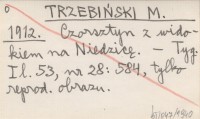 TRZEBIŃSKI M.
1912. Czorsztyn z wido-
kiem na Niedzicę. – Tyg.
Il. 53, nr 28: 584, tylko
reprod. obrazu.